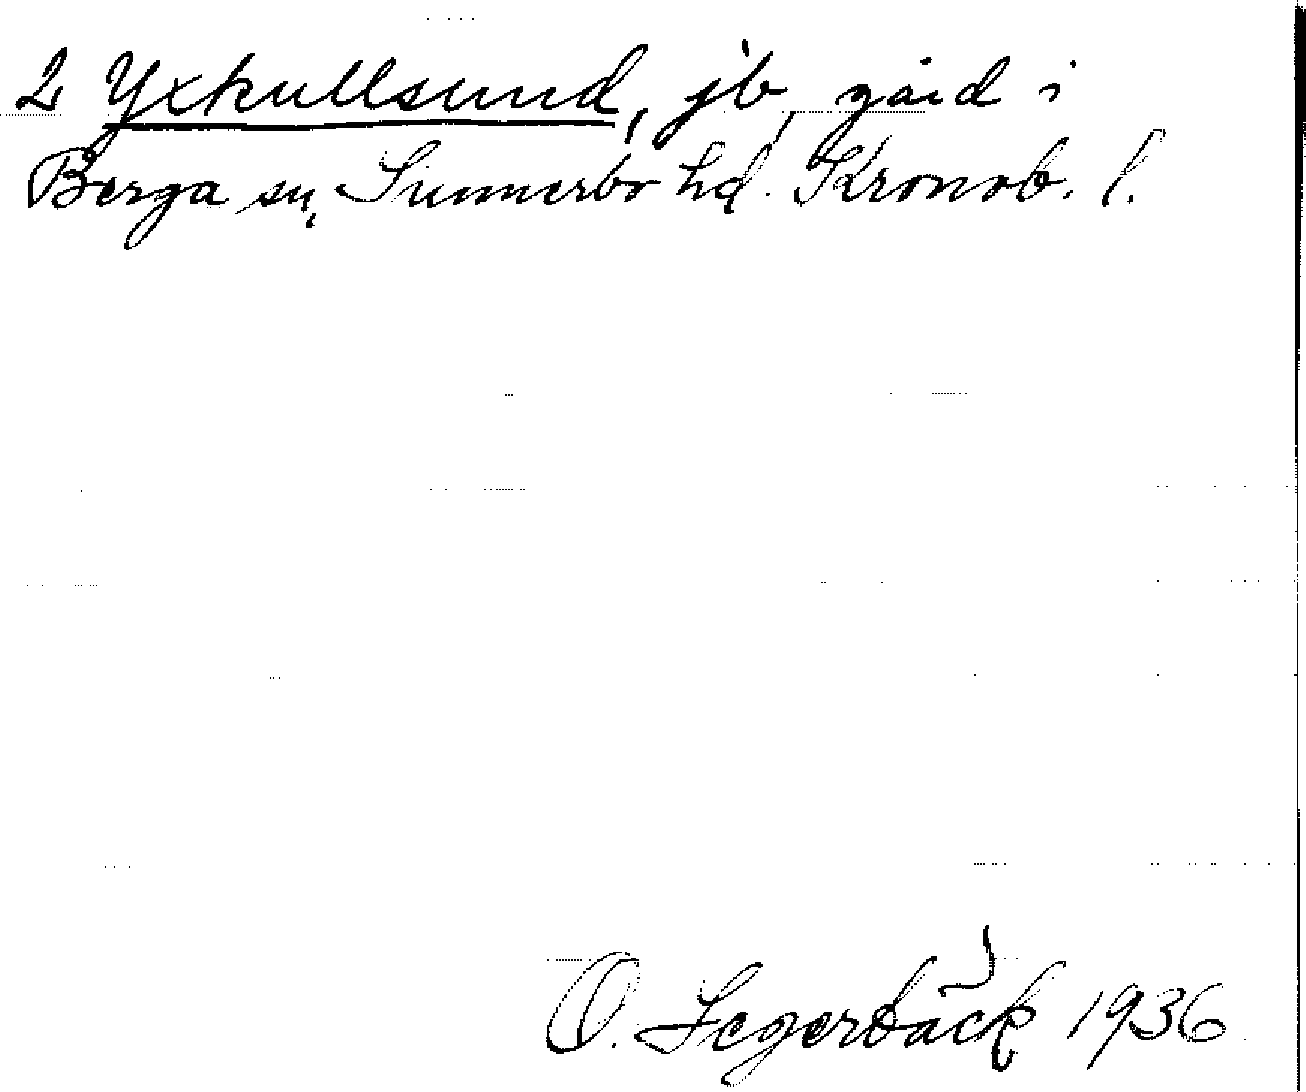 2 Yxkullsund, jb gård i
Berga sn, Sunnerbo hd. Kronob. l.
O. Segerbäck 1936